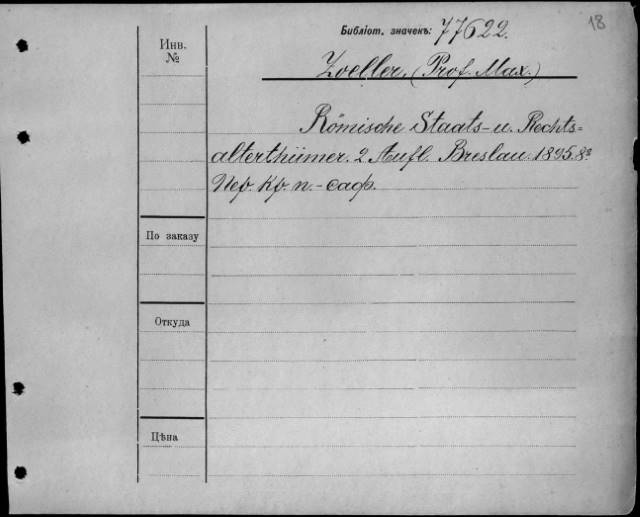 18
Библіот. значекъ: 77622.
Инв.
№
Zoeller. (Prof. Max.)
Römische Staats- u. Rechts=
alterthümer. 2 Aufl. Breslau. 1895. 8º
Пер. Кр. п.-саф.
По заказу
Откуда
Цѣна